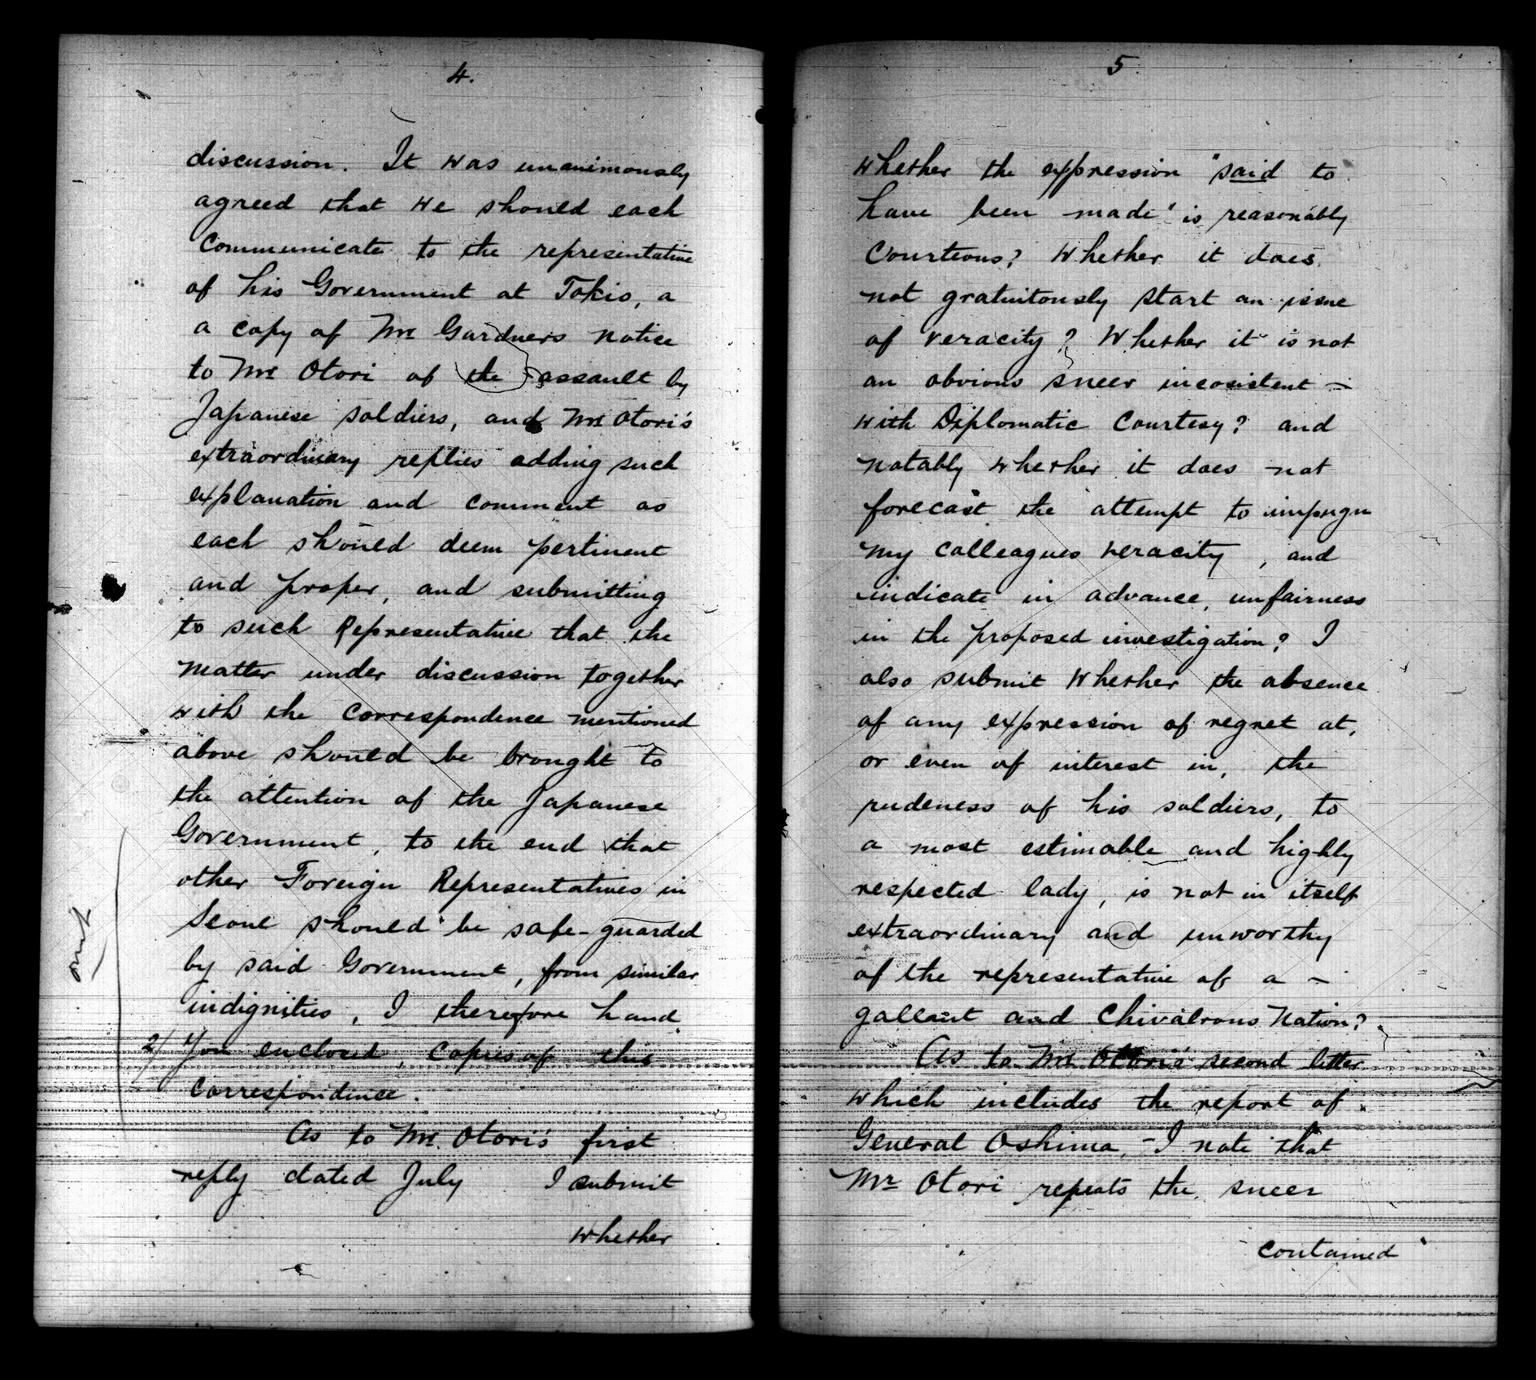 4.
discussion. It was unanimously
agreed that we should each
communicate to the representative
of his Government at Tokio, a
a copy of Mr Gardners notice
to Mr Otori of the assault by
Japanese soldiers, and Mr Otori's
extraordinary replies adding such
explanation and comment as
each should deem pertinent
and proper, and submitting
to such Representative that the
matter under discussion together
with the correspondence mentioned
above should be brought to
the attention of the Japanese
Government, to the end that
other Foreign Representatives in
Seoul should be safe-guarded
by said Government, from similar
indignities, I therefore hand
2/ you enclosed, copies of this
correspondence.
As to Mr. Otori's first
reply dated July I submit
whether
omit
5
whether the expression "said to
have been made" is reasonably
Courteous? Whether it does
not gratuitously start an issue
of veracity? Whether it is not
an obvious sneer incosistent -
with Diplomatic Courtesy? and
notably whether it does not
forecast the attempt to impugn
my colleagues veracity, and
indicate in advance, unfairness
in the proposed investigation? I
also submit whether the absence
of any expression of regret at,
or even of interest in, the
rudeness of his soldiers, to
a most estimable and highly
respected lady, is not in itself
extraordinary and unworthy
of the representative of a -
gallant and Chivalrous Nation?
As to Mr Otori's second letter
which includes the report of
General Oshima, - I note that
Mr Otori repeats the sneer
contained